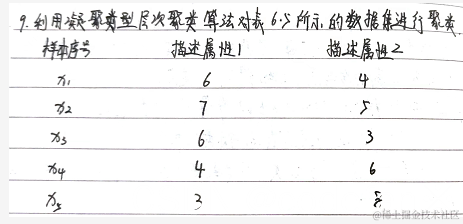 9.利用凝聚类型层次聚类算法对表6.5所示的数据集进行聚类
样本序号 描述属性1 描述属性2
x1 6 4
x2 7 5
x3 6 3
x4 4 6
x5 3
@稀土掘金技术社区